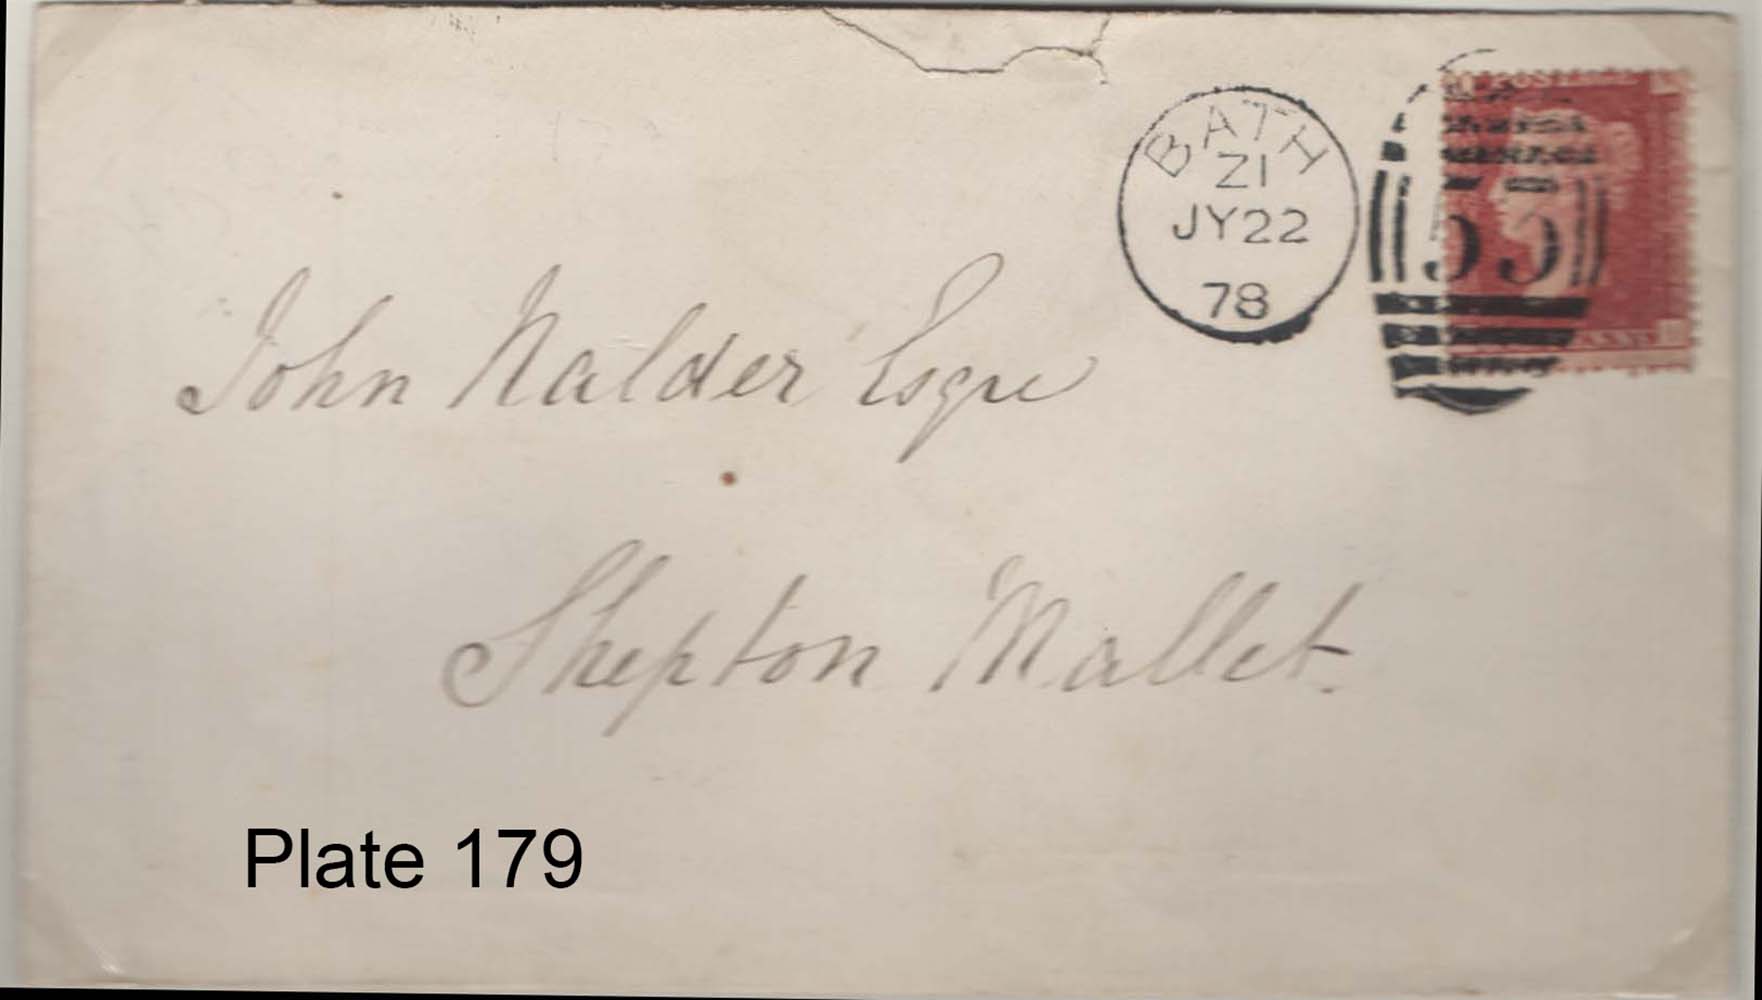 BATH
Z1
JY22
78
55
John Nalder Esqre
Shepton Mallet.
Plate 179